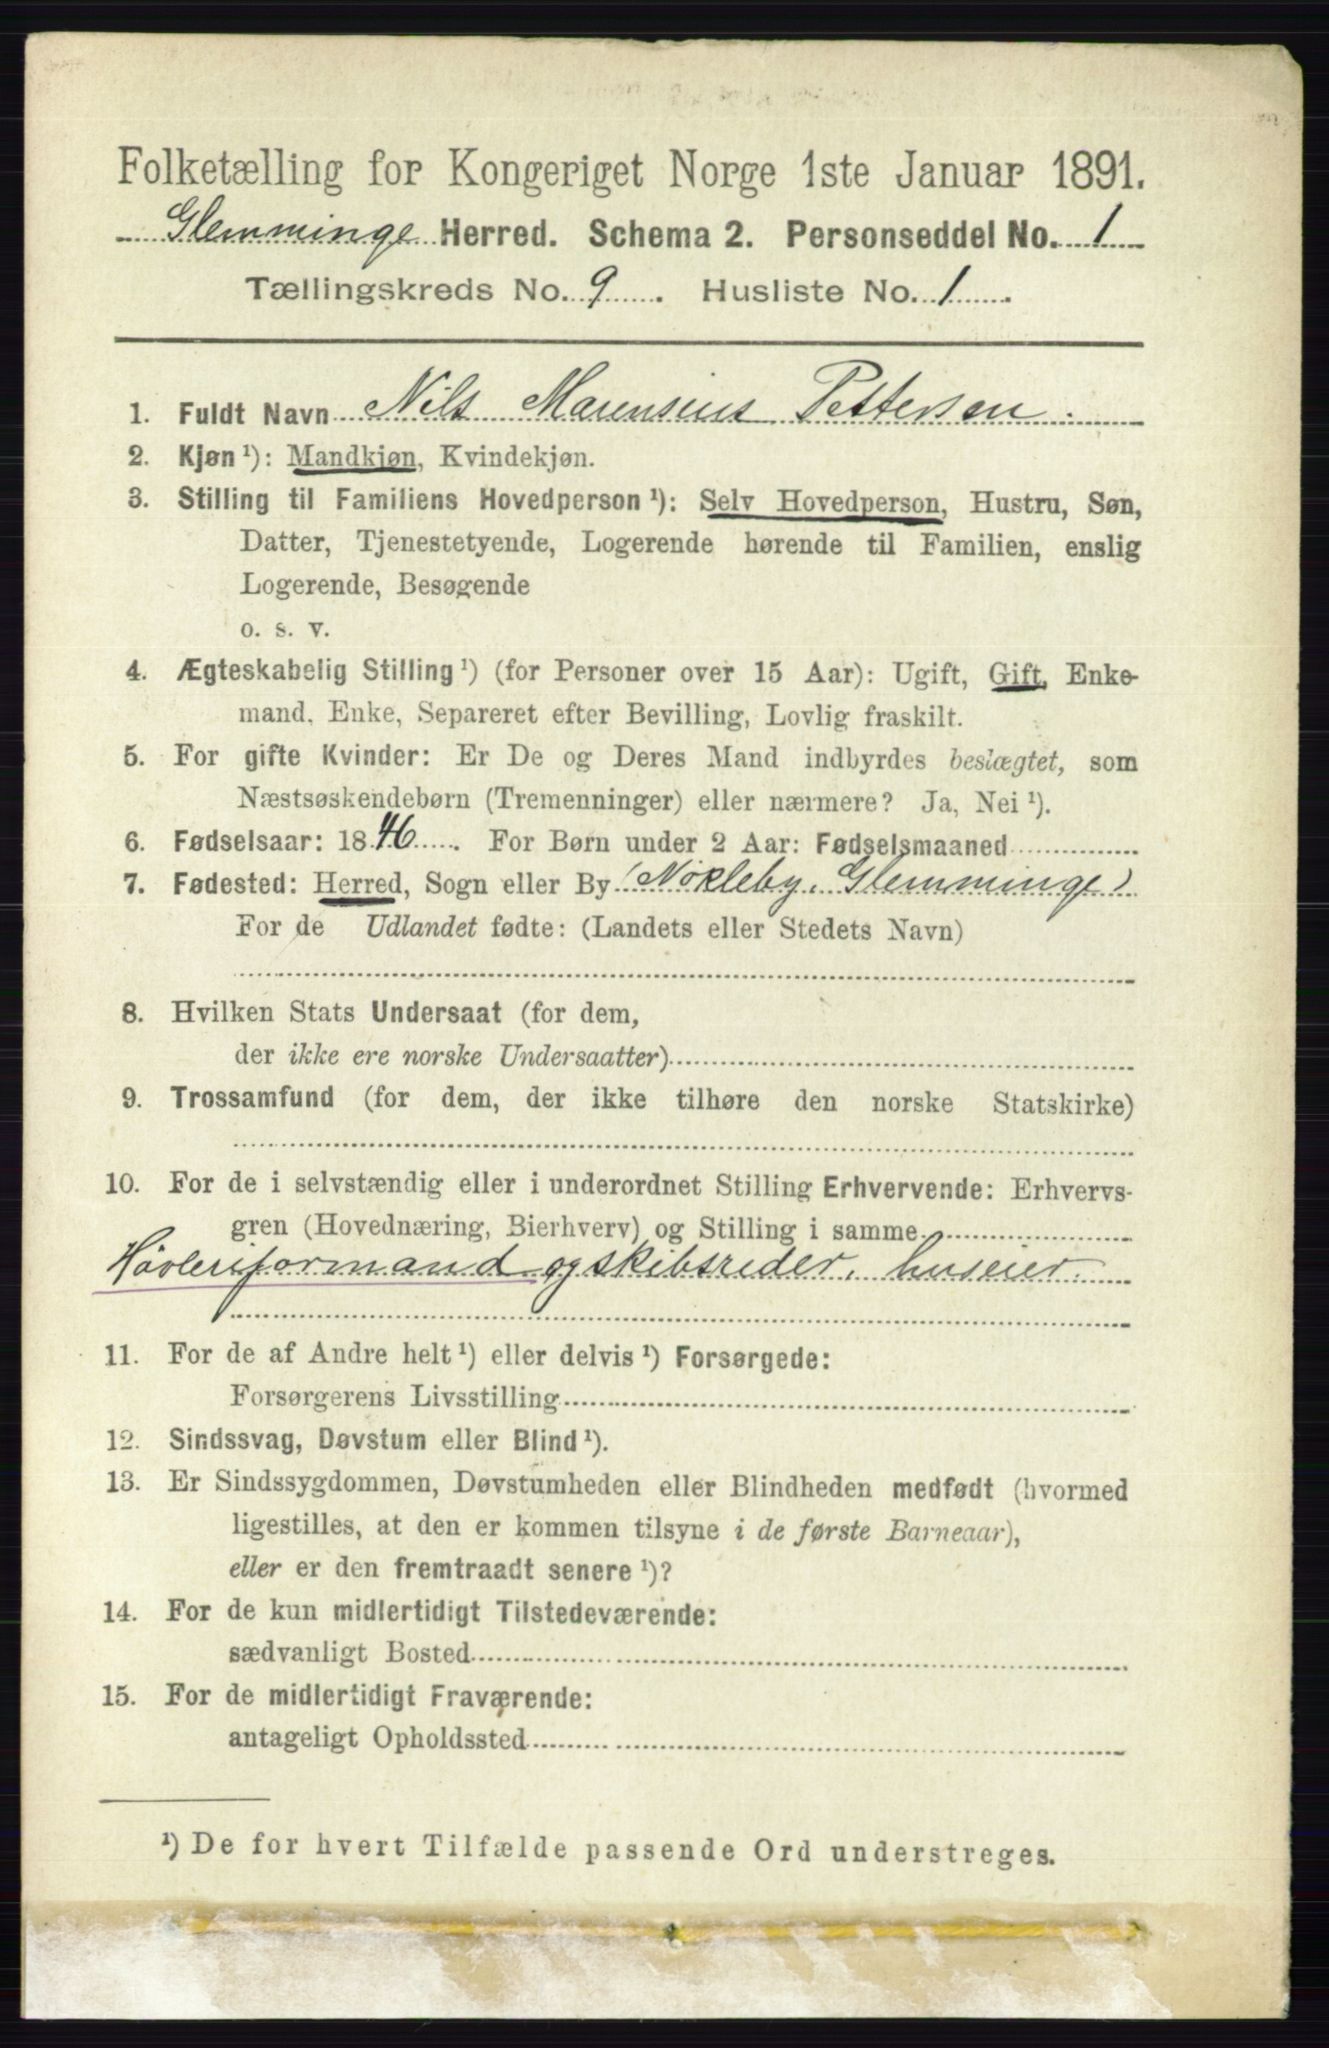 Folketælling for Kongeriget Norge 1ste Januar 1891.
Glemminge Herred. Schema 2. Personseddel No. 1
Tællingskreds No. 9. Husliste No. 1.
1. Fuldt Navn Nils Marensius Pettersen.
2. Kjøn ¹): Mandkjøn, Kvindekjøn.
3. Stilling til Familiens Hovedperson ¹): Selv Hovedperson, Hustru, Søn,
Datter, Tjenestetyende, Logerende hørende til Familien, enslig
Logerende, Besøgende
o. s. v.
4. Ægteskabelig Stilling ¹) (for Personer over 15 Aar): Ugift, Gift, Enke-
mand, Enke, Separeret efter Bevilling, Lovlig fraskilt.
5. For gifte Kvinder: Er De og Deres Mand indbyrdes beslægtet, som
Næstsøskendebørn (Tremenninger) eller nærmere? Ja, Nei ¹).
6. Fødselsaar: 1846. For Børn under 2 Aar: Fødselsmaaned
7. Fødested: Herred, Sogn eller By (Nøkleby, Glemminge)
For de Udlandet fødte: (Landets eller Stedets Navn)
8. Hvilken Stats Undersaat (for dem,
der ikke ere norske Undersaatter)
9. Trossamfund (for dem, der ikke tilhøre den norske Statskirke)
10. For de i selvstændig eller i underordnet Stilling Erhvervende: Erhvervs-
gren (Hovednæring, Bierhverv) og Stilling i samme
Høvleriformand og skibsreder, huseier.
11. For de af Andre helt ¹) eller delvis ¹) Forsørgede:
Forsørgerens Livsstilling
12. Sindssvag, Døvstum eller Blind ¹).
13. Er Sindssygdommen, Døvstumheden eller Blindheden medfødt (hvormed
ligestilles, at den er kommen tilsyne i de første Barneaar),
eller er den fremtraadt senere ¹)?
14. For de kun midlertidigt Tilstedeværende:
sædvanligt Bosted
15. For de midlertidigt Fraværende:
antageligt Opholdssted
¹) De for hvert Tilfælde passende Ord understreges.